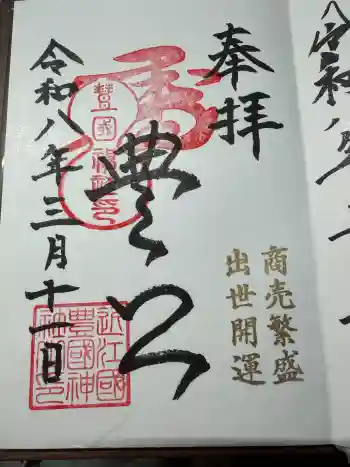 奉拝
豊公
令和八年三月十一日
商売繁盛
出世開運
豊國神社印
近江國
豊國神